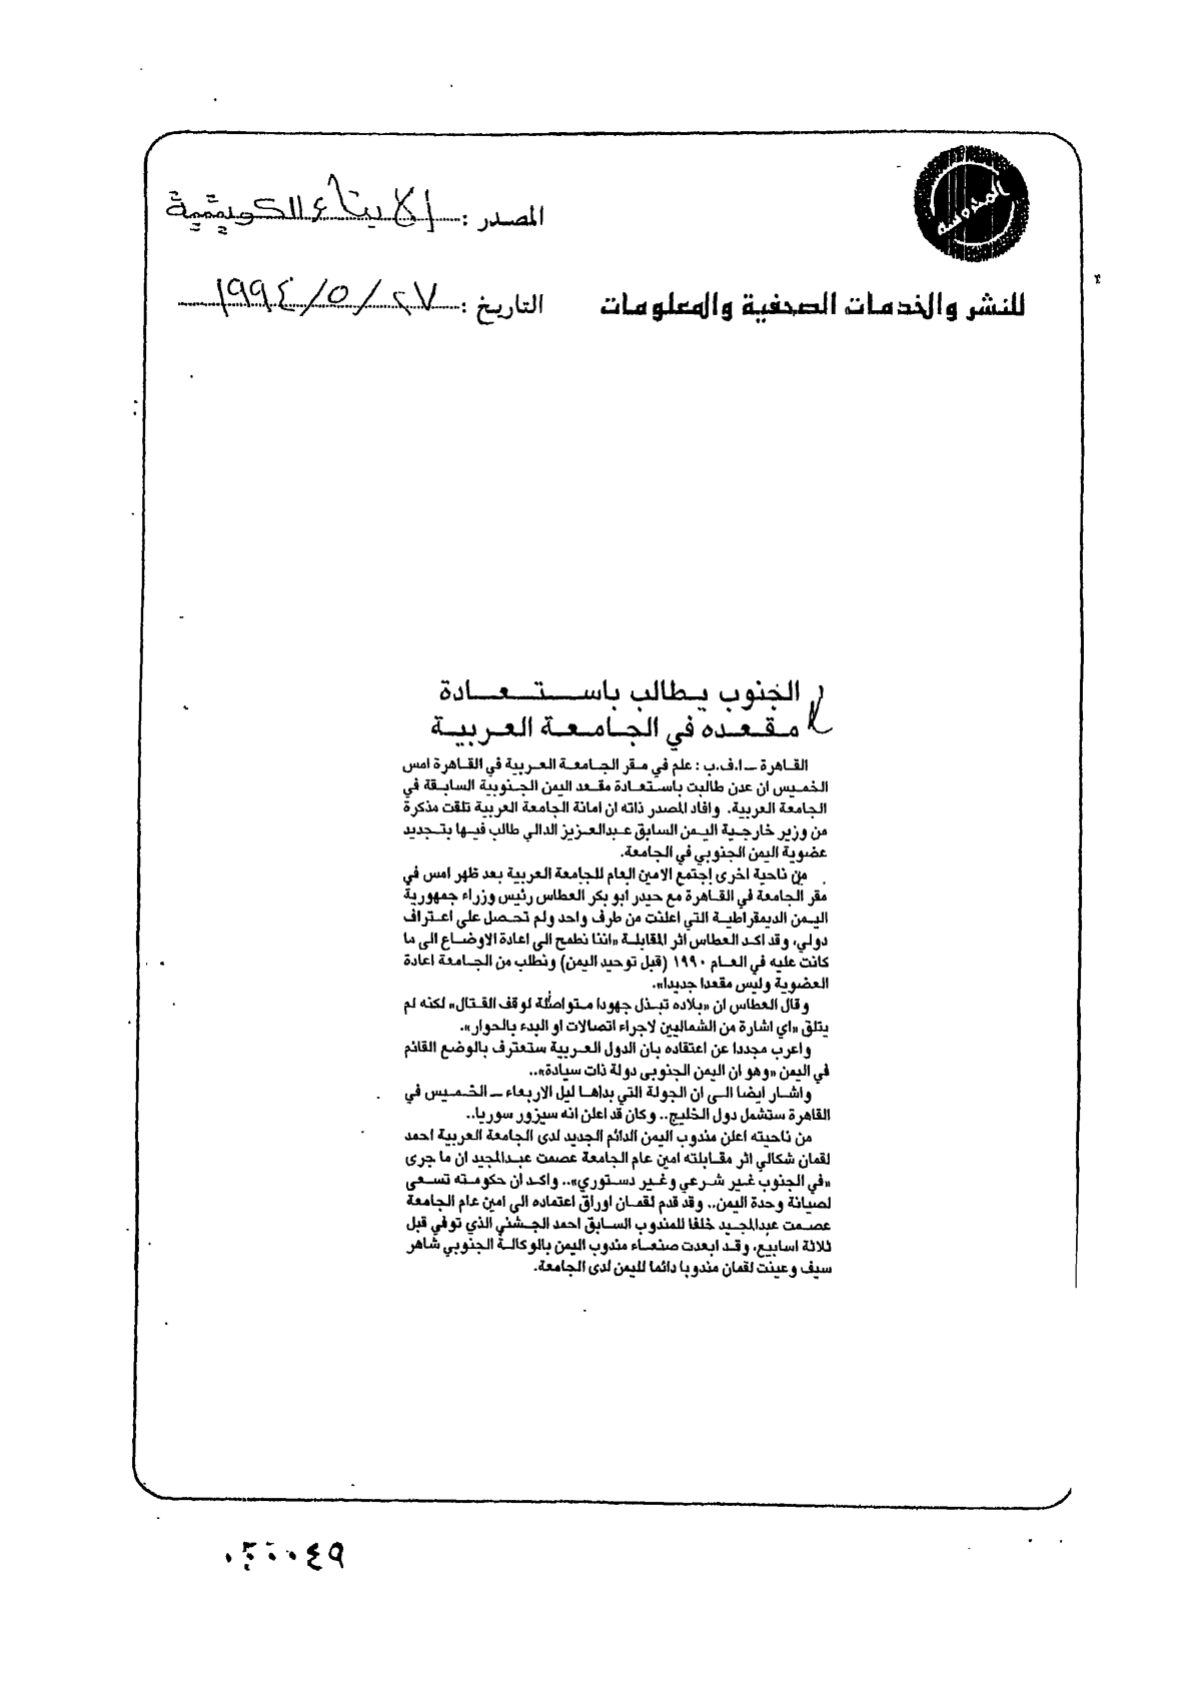 المحروسة
المصدر : الانباء الكويتية
للنشر والخدمات الصحفية والمعلومات
التاريخ : ٢٧ / ٥ / ١٩٩٤
الجنوب يطالب باستعادة
مقعده في الجامعة العربية
القاهرة ـ ا.ف.ب : علم في مقر الجامعة العربية في القاهرة امس
الخميس ان عدن طالبت باستعادة مقعد اليمن الجنوبية السابقة في
الجامعة العربية. وافاد المصدر ذاته ان امانة الجامعة العربية تلقت مذكرة
من وزير خارجية اليمن السابق عبدالعزيز الدالي طالب فيها بتجديد
عضوية اليمن الجنوبي في الجامعة.
من ناحية اخرى إجتمع الامين العام للجامعة العربية بعد ظهر امس في
مقر الجامعة في القاهرة مع حيدر ابو بكر العطاس رئيس وزراء جمهورية
اليمن الديمقراطية التي اعلنت من طرف واحد ولم تحصل على اعتراف
دولي، وقد اكد العطاس اثر المقابلة «اننا نطمح الى اعادة الاوضاع الى ما
كانت عليه في العام ١٩٩٠ (قبل توحيد اليمن) ونطلب من الجامعة اعادة
العضوية وليس مقعدا جديدا».
وقال العطاس ان «بلاده تبذل جهودا متواصلة لوقف القتال» لكنه لم
يتلق «اي اشارة من الشماليين لاجراء اتصالات او البدء بالحوار».
واعرب مجددا عن اعتقاده بان الدول العربية ستعترف بالوضع القائم
في اليمن «وهو ان اليمن الجنوبي دولة ذات سيادة»..
واشار ايضا الى ان الجولة التي بداها ليل الاربعاء ـ الخميس في
القاهرة ستشمل دول الخليج.. وكان قد اعلن انه سيزور سوريا..
من ناحيته اعلن مندوب اليمن الدائم الجديد لدى الجامعة العربية احمد
لقمان شكالي اثر مقابلته امين عام الجامعة عصمت عبدالمجيد ان ما جرى
«في الجنوب غير شرعي وغير دستوري».. واكد ان حكومته تسعى
لصيانة وحدة اليمن.. وقد قدم لقمان اوراق اعتماده الى امين عام الجامعة
عصمت عبدالمجيد خلفا للمندوب السابق احمد الجشني الذي توفي قبل
ثلاثة اسابيع، وقد ابعدت صنعاء مندوب اليمن بالوكالة الجنوبي شاهر
سيف وعينت لقمان مندوبا دائما لليمن لدى الجامعة.